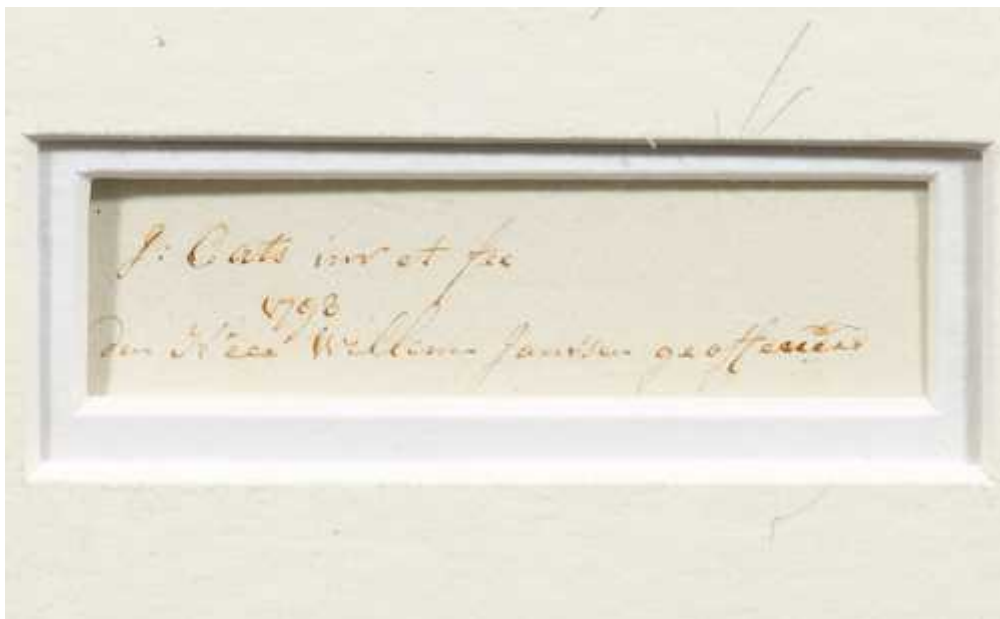 J: Cats inv et fec
1798
den Heer Willem Janssen geoffereert